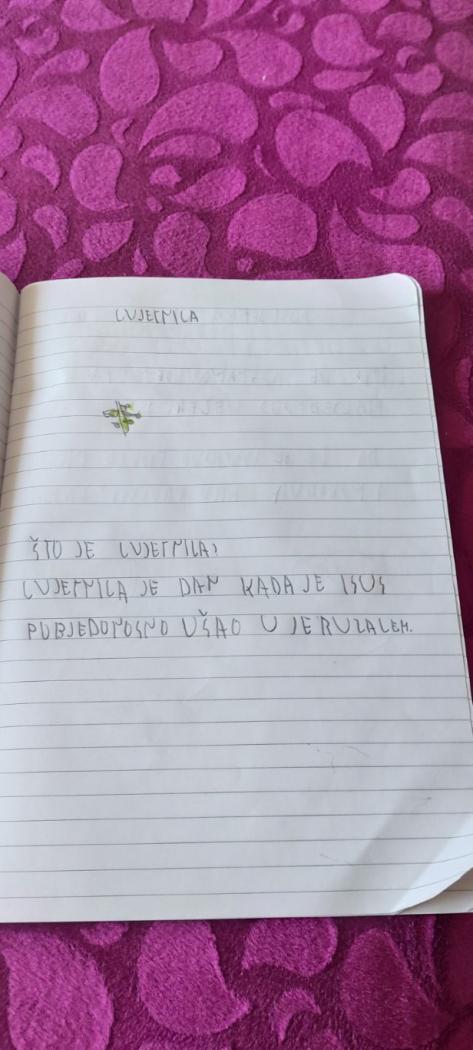 CVJETNICA
ŠTO JE CVJETNICA?
CVJETNICA JE DAN KADA JE ISUS
POBJEDONOSNO UŠAO U JERUZALEM.